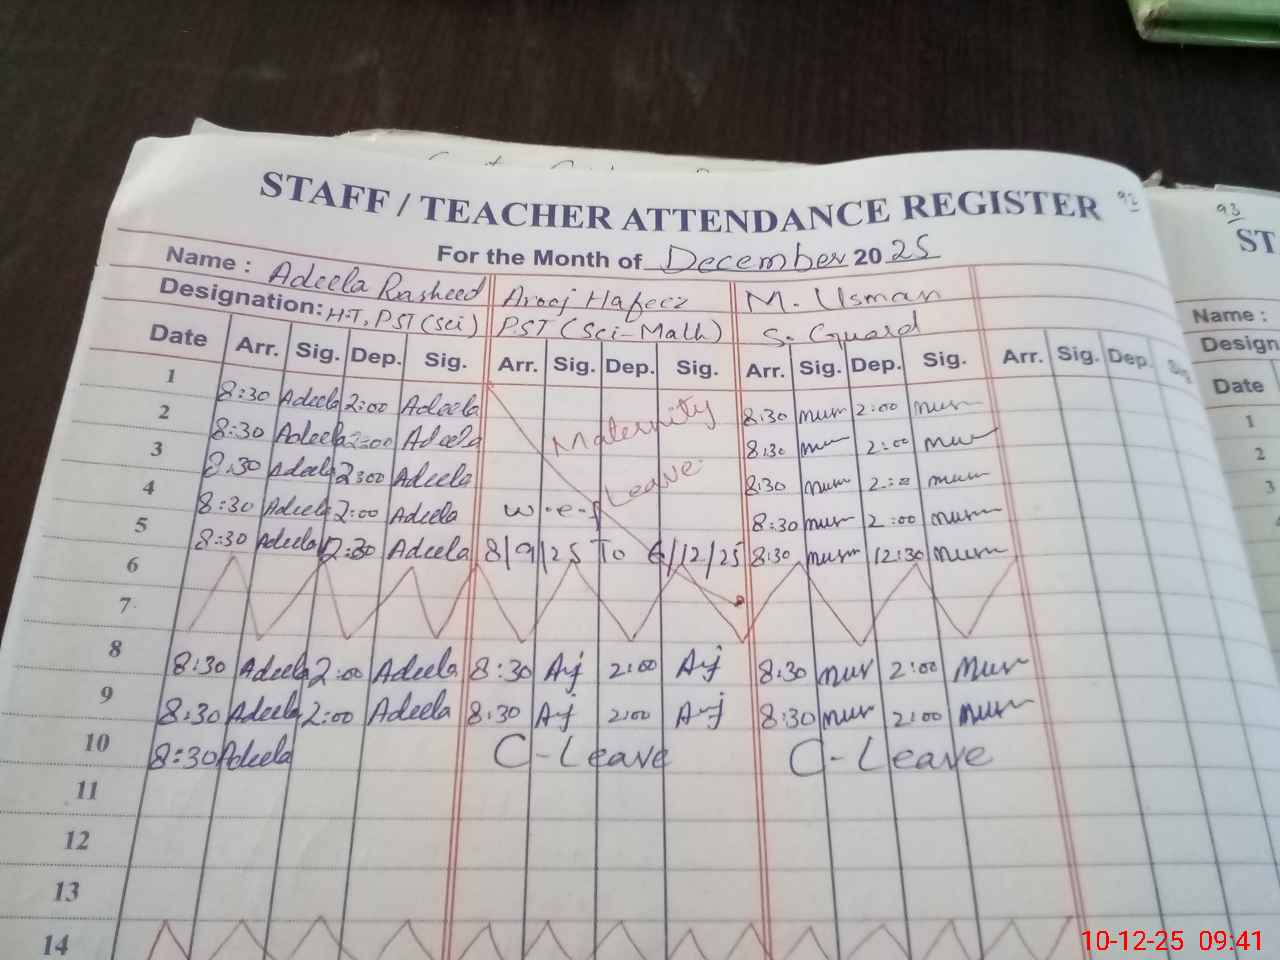 92
STAFF / TEACHER ATTENDANCE REGISTER
For the Month of December 2025
Name : Adeela Rasheed Arooj Hafeez M. Usman
Designation: H.T, PST (Sci) PST (Sci-Math) S. Guard
Date Arr. Sig. Dep. Sig. Arr. Sig. Dep. Sig. Arr. Sig. Dep. Sig. Arr. Sig. Dep. Sig.
1 8:30 Adeela 2:00 Adeela Maternity 8:30 2:00
2 8:30 Adeela 2:00 Adeela 8:30 2:00
3 8:30 Adeela 2:00 Adeela Leave 8:30 2:00
4 8:30 Adeela 2:00 Adeela w.e.f 8:30 2:00
5 8:30 Adeela 12:30 Adeela 8/9/25 To 6/12/25 8:30 12:30
6
7
8 8:30 Adeela 2:00 Adeela 8:30 Arj 2:00 Arj 8:30 2:00
9 8:30 Adeela 2:00 Adeela 8:30 Arj 2:00 Arj 8:30 2:00
10 8:30 Adeela C-Leave C-Leave
11
12
13
14
93
ST
Name :
Design
Date
1
2
3
4
10-12-25 09:41